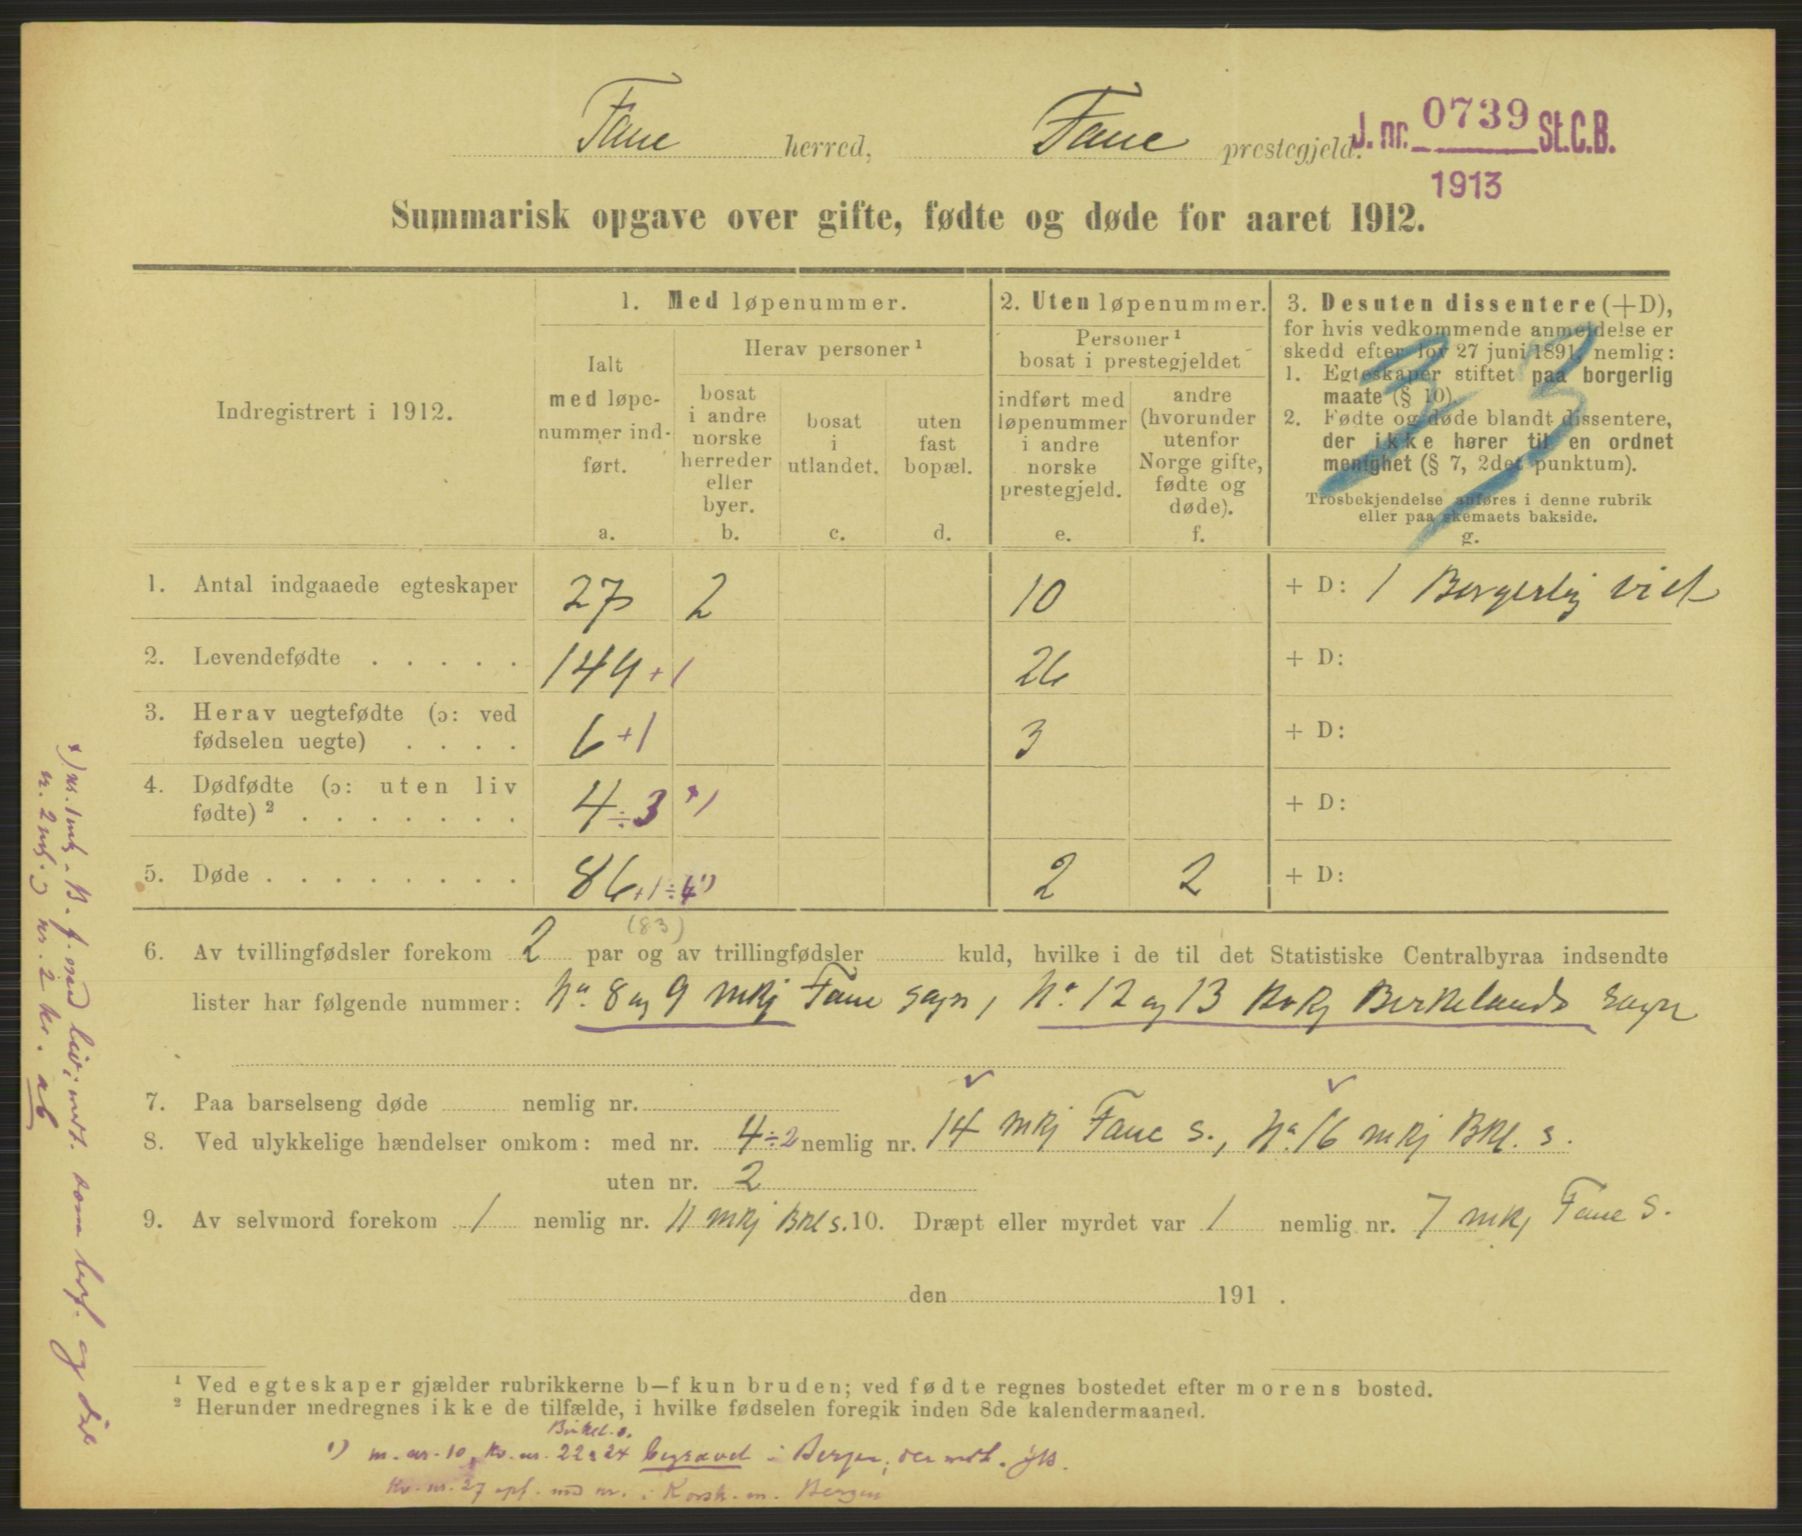 Fane herred, Fane prestegjeld.
J. nr. 0739 St.C.B.
1913
Summarisk opgave over gifte, fødte og døde for aaret 1912.
Indregistrert i 1912.
1. Med løpenummer.
Ialt med løpe-nummer ind-ført.
a.
Herav personer ¹
bosat i andre norske herreder eller byer.
b.
bosat i utlandet.
c.
uten fast bopæl.
d.
2. Uten løpenummer.
Personer ¹ bosat i prestegjeldet
indført med løpenummer i andre norske prestegjeld.
e.
andre (hvorunder utenfor Norge gifte, fødte og døde).
f.
3. Desuten dissentere (+D),
for hvis vedkommende anmeldelse er
skedd efter lov 27 juni 1891, nemlig:
1. Egteskaper stiftet paa borgerlig
maate (§ 10).
2. Fødte og døde blandt dissentere,
der ikke hører til en ordnet
menighet (§ 7, 2det punktum).
Trosbekjendelse anføres i denne rubrik
eller paa skemaets bakside.
g.
1. Antal indgaaede egteskaper 27 2 10 + D: 1 Borgerlig viet
2. Levendefødte . . . . . 149 +1 26 + D:
3. Herav uegtefødte (ɔ: ved
fødselen uegte) . . . . 6 +1 3 + D:
4. Dødfødte (ɔ: uten liv
fødte) ² . . . . . . . 4 ÷ 3 *) + D:
5. Døde . . . . . . . . 86 +1 ÷ 4 ¹) 2 2 + D:
(83)
6. Av tvillingfødsler forekom 2 par og av trillingfødsler kuld, hvilke i de til det Statistiske Centralbyraa indsendte
lister har følgende nummer: No. 8 og 9 mkj Fane sogn, No. 12 og 13 Kvkj Birkelands sogn
7. Paa barselseng døde nemlig nr.
8. Ved ulykkelige hændelser omkom: med nr. 4 ÷ 2 nemlig nr. 14 mkj Fane s., No. 16 mkj Bkl. s.
uten nr. 2
9. Av selvmord forekom 1 nemlig nr. 11 mkj Bkl s. 10. Dræpt eller myrdet var 1 nemlig nr. 7 mkj Fane s.
den 191 .
¹ Ved egteskaper gjælder rubrikkerne b—f kun bruden; ved fødte regnes bostedet efter morens bosted.
² Herunder medregnes ikke de tilfælde, i hvilke fødselen foregik inden 8de kalendermaaned.
Birkel. s.
¹) m. nr. 10, kv. nr. 22 & 24 begravet i Bergen;
kv. nr. 27 opf. med nr. i Korsk. m. Bergen
*) nr. 1 mk - B. f. med liv; medt. som lev f. og død
nr. 2 kv. ab